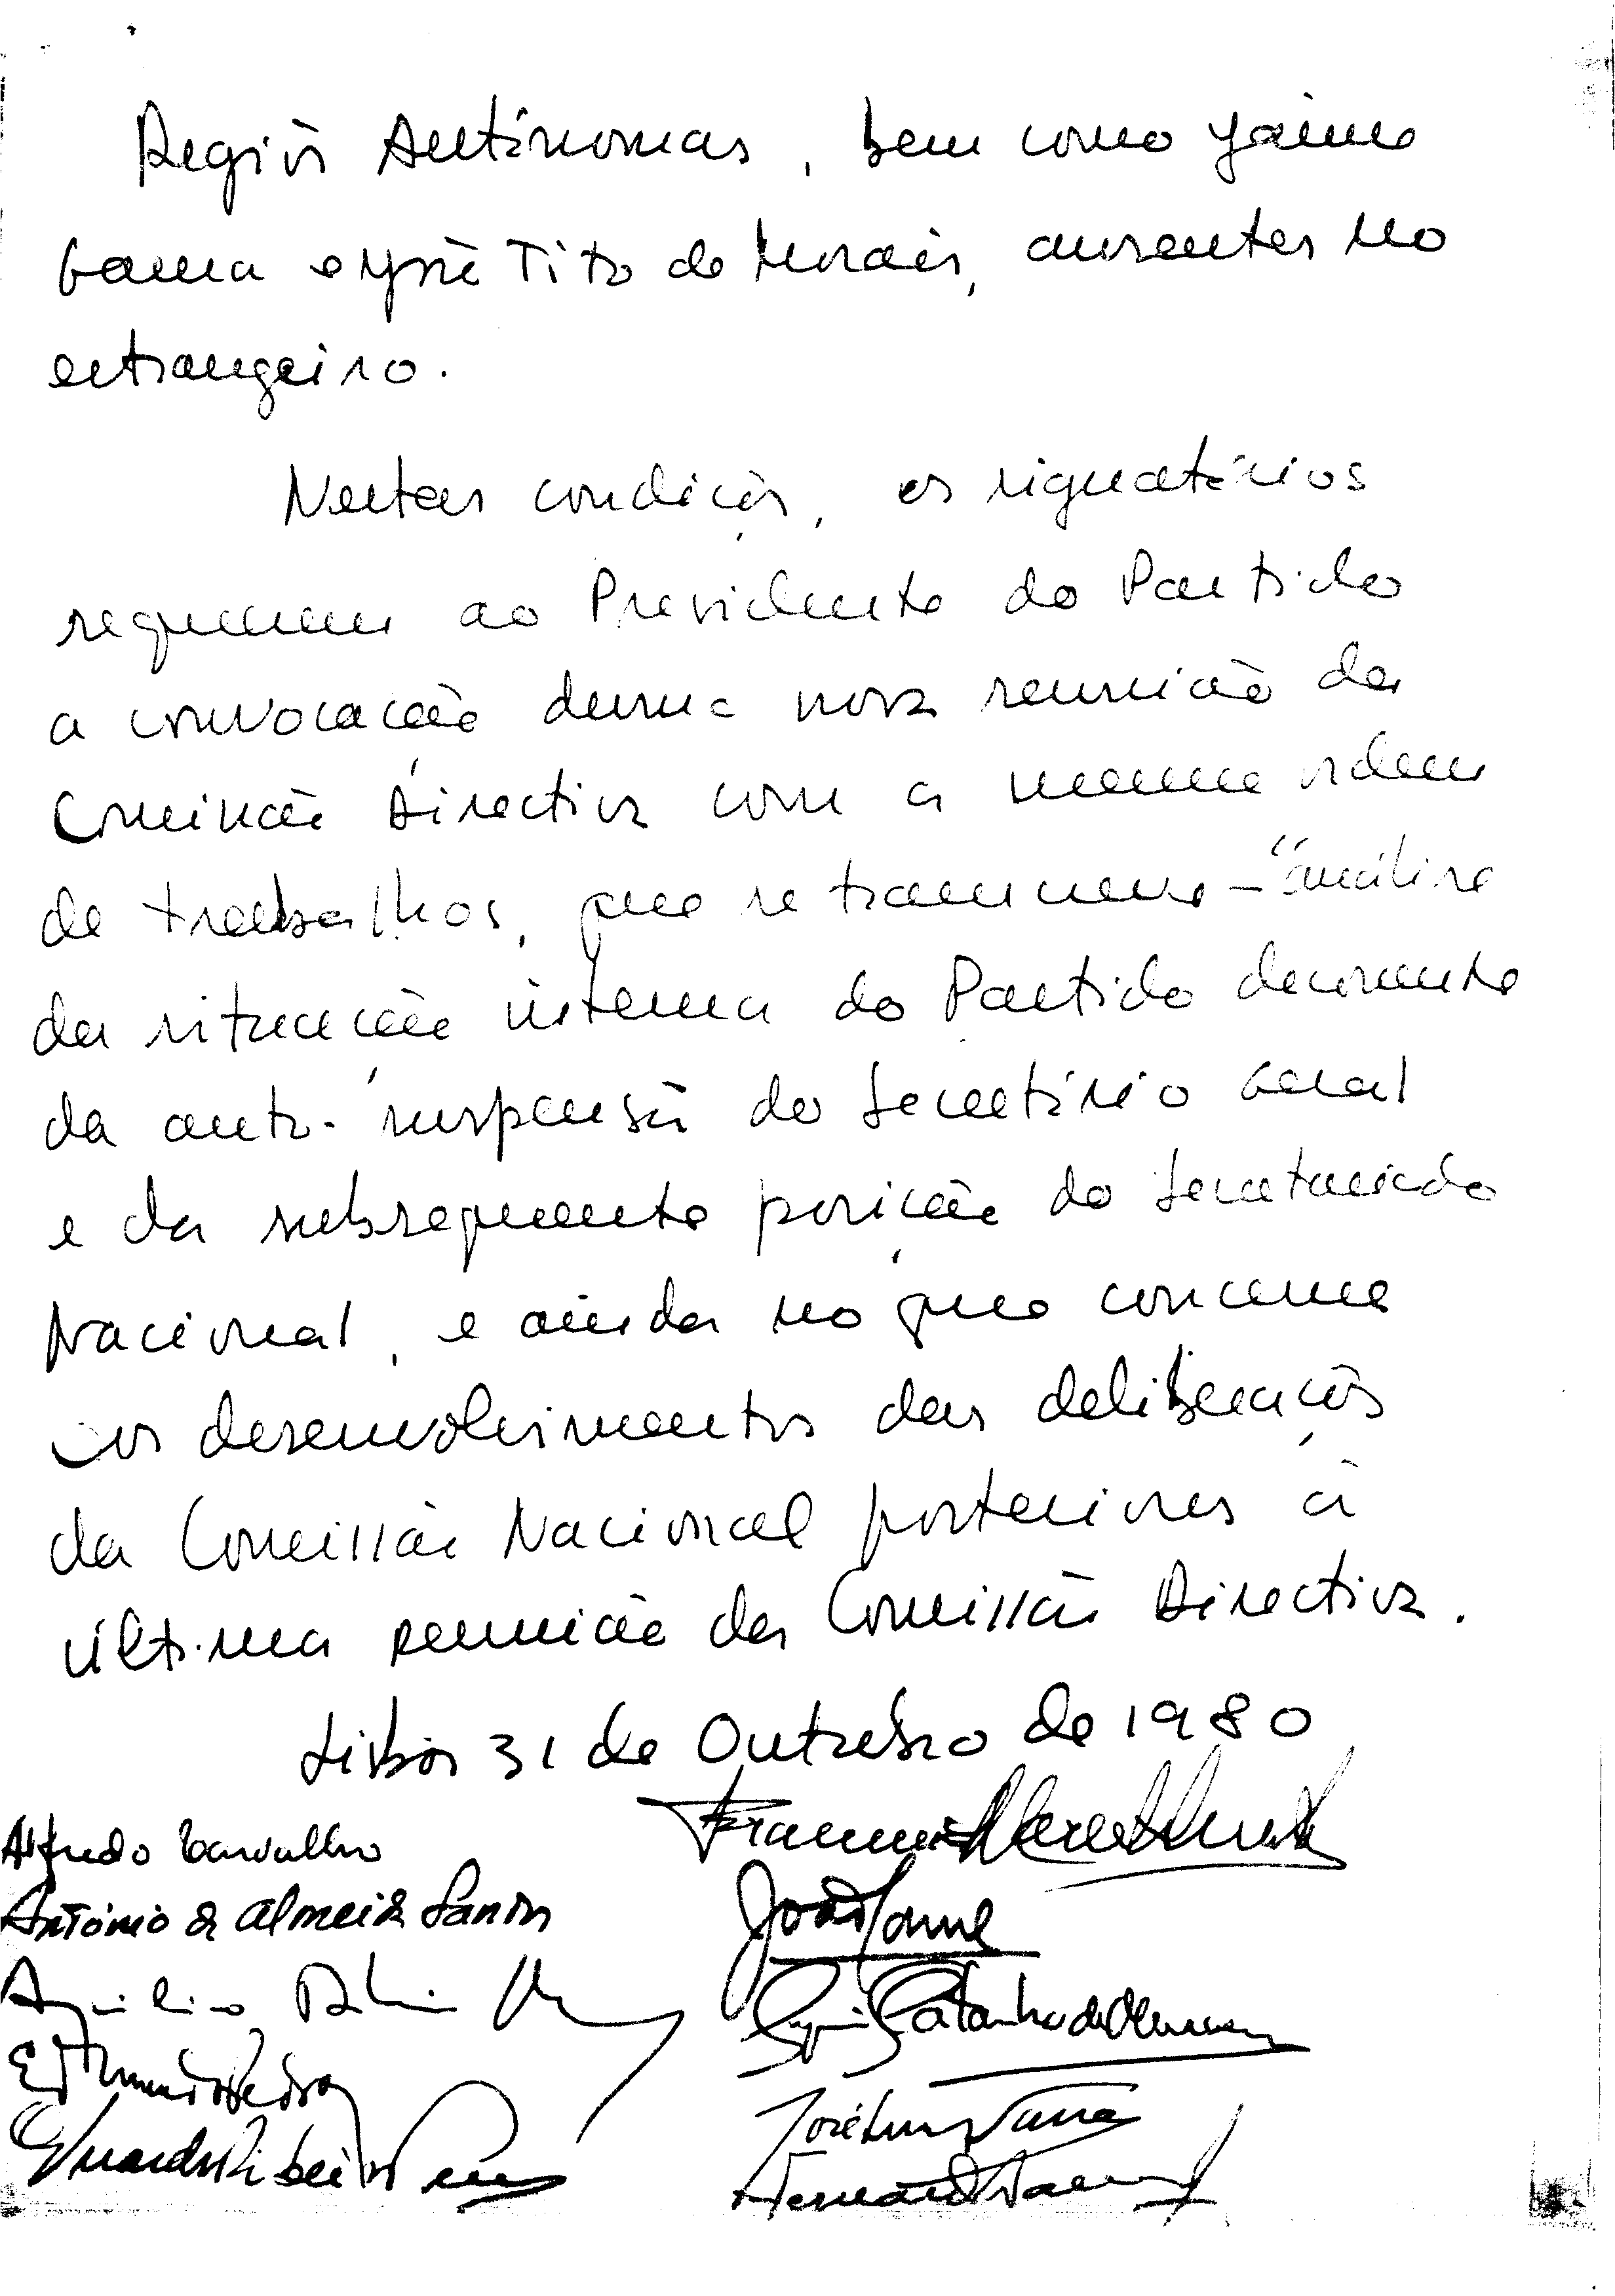 Regiões Autónomas, bem como Jaime
Gama e José Tito de Morais, ausentes no
estrangeiro.
Nestas condições, os signatários
requerem ao Presidente do Partido
a convocação duma nova reunião da
Comissão Directiva com a mesma ordem
de trabalhos, que se transcreve - "análise
da situação interna do Partido decorrente
da auto-suspensão do Secretário Geral
e da subsequente posição do Secretariado
Nacional, e ainda no que concerne
os desenvolvimentos das deliberações
da Comissão Nacional posteriores à
última reunião da Comissão Directiva.
Lisboa 31 de Outubro de 1980
Alfredo Carvalho
António de Almeida Santos
João
Edmundo Pedro
Catanho de Menezes
Eduardo Ribeiro
José Luis Nunes
Fernando